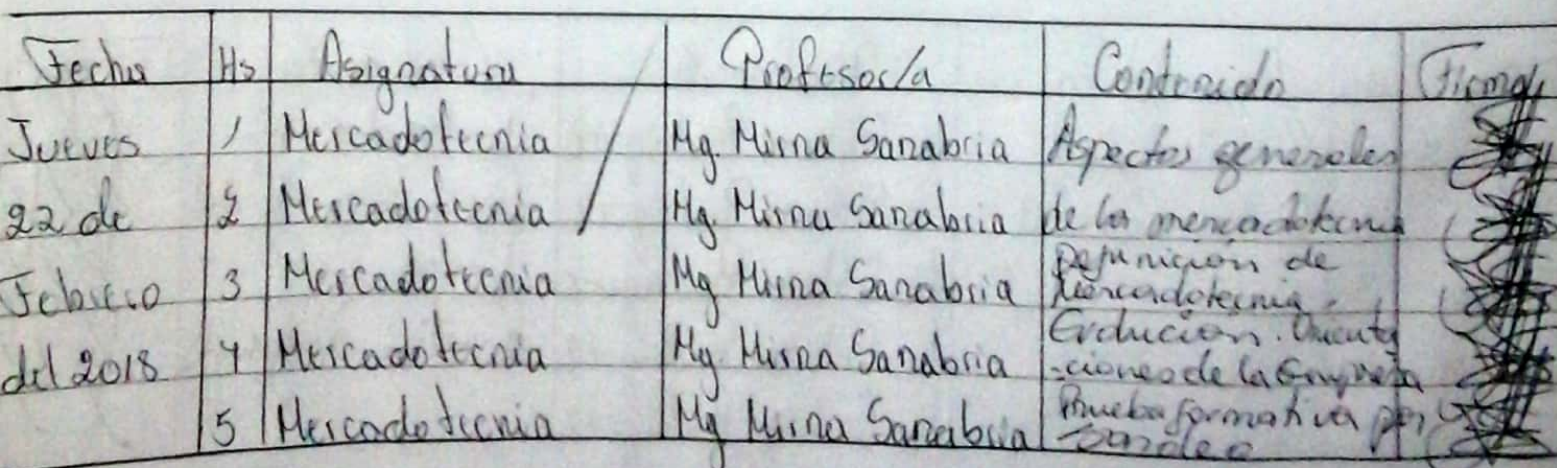 Fecha Hs Asignatura Profesor/a Contenido Firma
Jueves 1 Mercadotecnia Mg. Mirna Sanabria Aspectos generales
22 de 2 Mercadotecnia Mg. Mirna Sanabria de la mercadotecnia
Febrero 3 Mercadotecnia Mg Mirna Sanabria Definición de
mercadotecnia.
del 2018 4 Mercadotecnia Mg Mirna Sanabria Evolución. Orienta
-ciones de la Empresa
5 Mercadotecnia Mg Mirna Sanabria Prueba formativa por